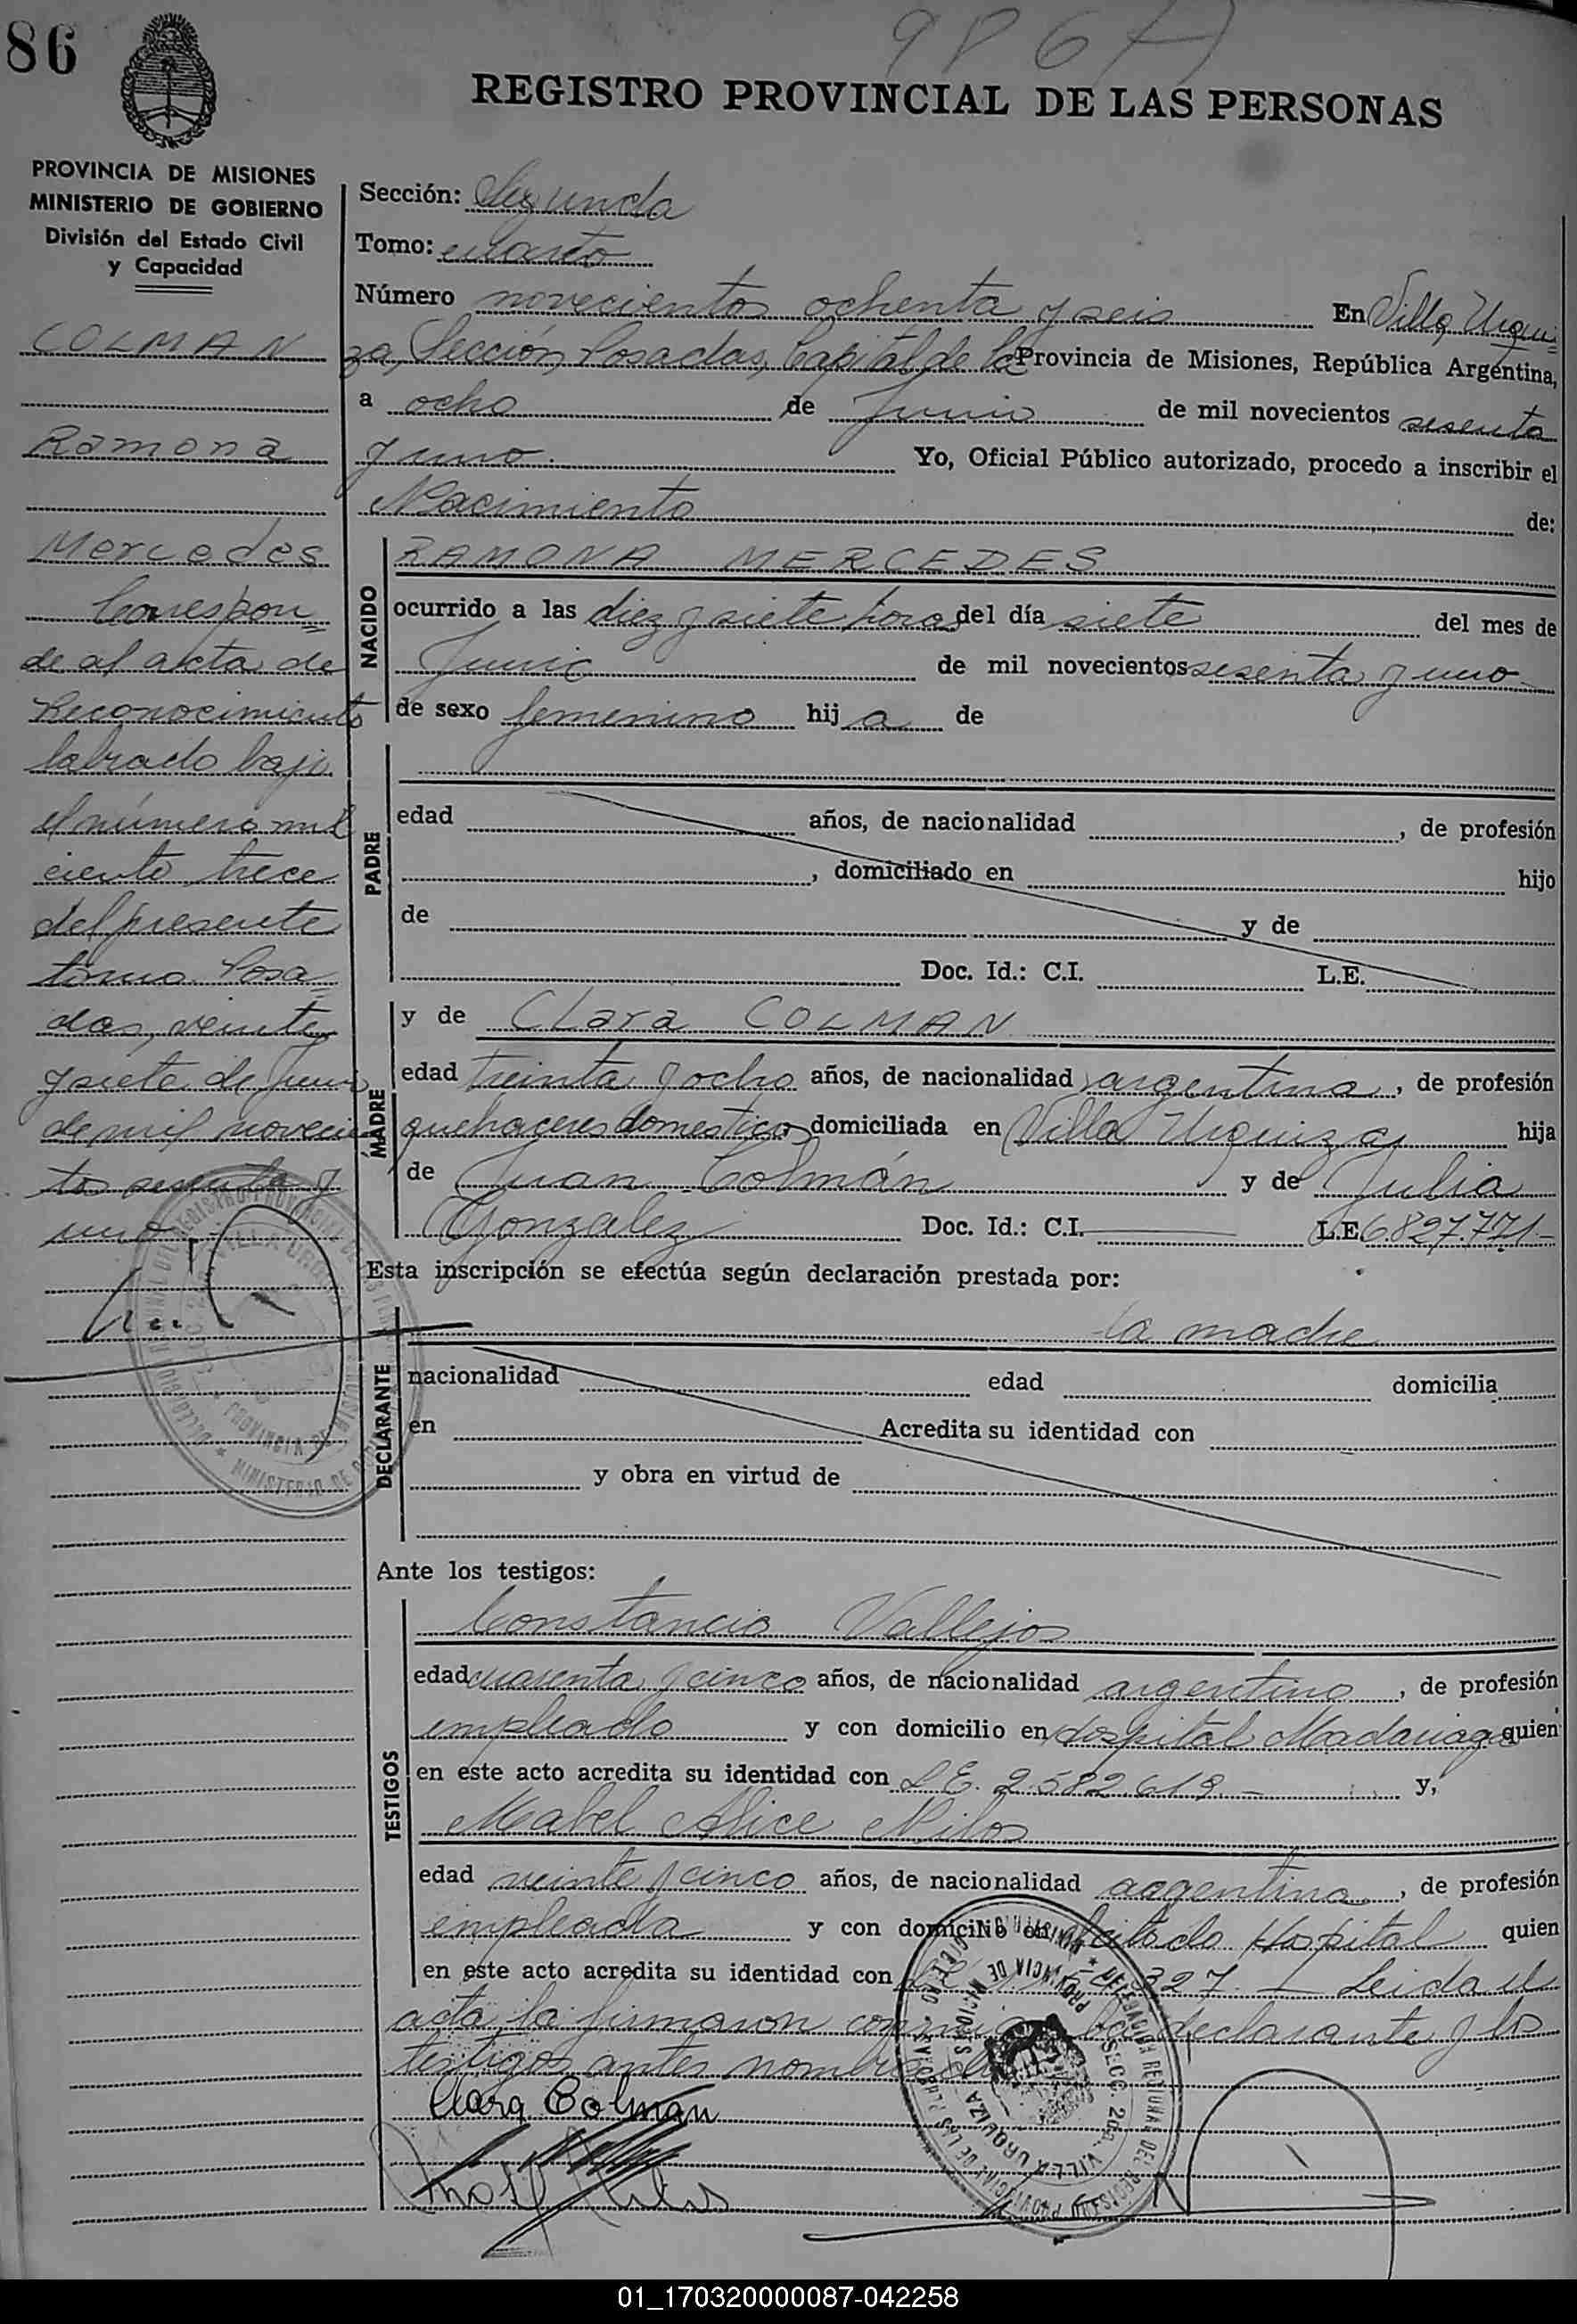 86
986
REGISTRO PROVINCIAL DE LAS PERSONAS
PROVINCIA DE MISIONES
MINISTERIO DE GOBIERNO
División del Estado Civil
y Capacidad
COLMAN
Ramona
Mercedes
Correspon=
de al acta de
Reconocimiento
labrado bajo
el número mil
ciento trece
del presente
tomo. Posa=
das, veinte
y siete de Junio
de mil novecien
tos sesenta y
uno
Sección: Segunda
Tomo: cuarto
Número novecientos ochenta y seis En Villa Urqui=
za, Sección, Posadas, Capital de la Provincia de Misiones, República Argentina,
a ocho de Junio de mil novecientos sesenta
y uno. Yo, Oficial Público autorizado, procedo a inscribir el
Nacimiento de:
NACIDO
RAMONA MERCEDES
ocurrido a las diez y siete horas del día siete del mes de
Junio de mil novecientos sesenta y uno
de sexo femenino hij a de
PADRE
edad años, de nacionalidad , de profesión
, domiciliado en hijo
de y de
Doc. Id.: C.I. L.E.
MADRE
y de Clara COLMAN
edad treinta y ocho años, de nacionalidad argentina, de profesión
quehaceres domesticos domiciliada en Villa Urquiza hija
de Juan Colmán y de Julia
Gonzalez Doc. Id.: C.I. L.E 6.827.771-
Esta inscripción se efectúa según declaración prestada por:
DECLARANTE
la madre
nacionalidad edad domicilia
en Acredita su identidad con
y obra en virtud de
Ante los testigos:
TESTIGOS
Constancio Vallejos
edad cuarenta y cinco años, de nacionalidad argentino, de profesión
empleado y con domicilio en Hospital Madariaga quien
en este acto acredita su identidad con L.E. 2.582.619.- y,
Mabel Alice
edad veinte y cinco años, de nacionalidad argentina, de profesión
empleada y con domicilio en citado Hospital quien
en este acto acredita su identidad con 327. - Leida el
acta la firmaron conmigo la declarante y los
testigos antes nombrados
Clara Colman
VILLA URQUIZA
SECC. 2da.
PROVINCIA DE MISIONES
01_170320000087-042258